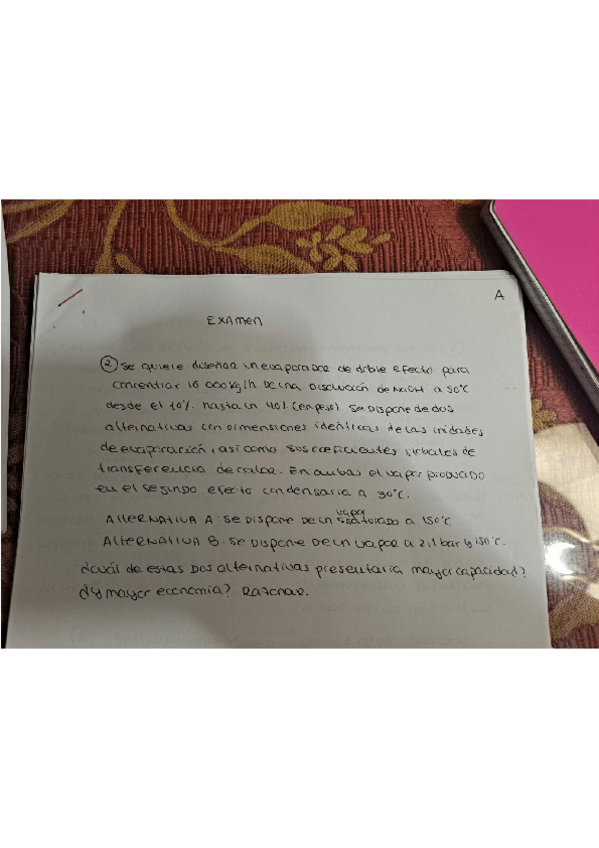 A
EXAMEN
② Se quiere diseñar un evaporador de doble efecto para
concentrar 16 000 kg/h de una disolución de NaOH a 50°C
desde el 10% hasta un 40% (en peso) Se dispone de dos
alternativas con dimensiones idénticas de las unidades
de evaporación, así como sus coeficientes globales de
transferencia de calor. En ambas el vapor producido
en el segundo efecto condensaría a 30°C.
ALTERNATIVA A: SE DISPONE DE UN vapor saturado a 150°C
ALTERNATIVA B: SE DISPONE DE UN VAPOR A 2.1 bar y 150°C.
¿Cuál de estas dos alternativas presentaría mayor capacidad?
¿y mayor economía? Razonar.